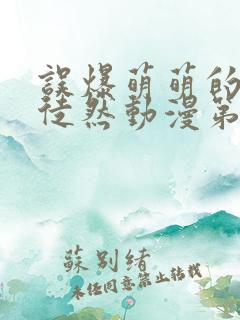 誤爆萌萌的
徒然動漫第
蘇別緒
未任同意禁止转载